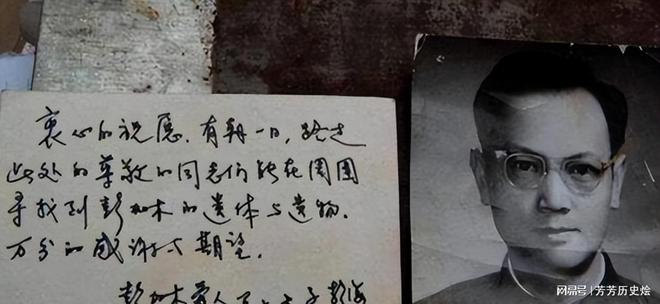 衷心的祝愿,有朝一日,路过
此处的尊敬的同志们能在周围
寻找到彭加木的遗体与遗物.
万分的感谢与期望。
彭加木爱人 子彭海
搜狐号@芳芳历史烩